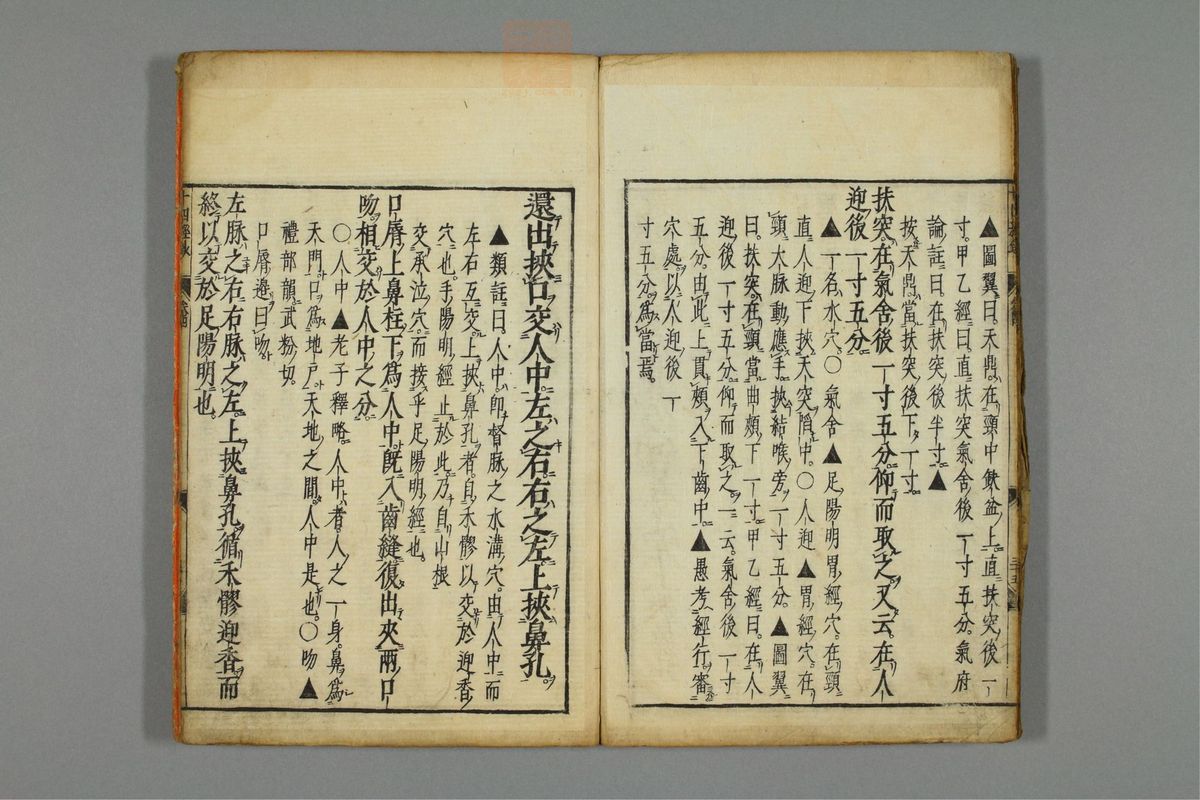 ▲圖翼曰天鼎在頸中缺盆上直扶突後一
寸甲乙經曰直扶突氣舍後一寸五分氣府
論註曰在扶突後半寸▲
按天鼎當扶突後下一寸
扶突在氣舍後一寸五分仰而取之又云在人
迎後一寸五分
▲一名水穴〇氣舍▲足陽明胃經穴在頸
直人迎下挾天突陷中〇人迎▲胃經穴在
頸大脉動應手挾結喉旁一寸五分▲圖翼
曰扶突在頸當曲頰下一寸甲乙經曰在人
迎後一寸五分仰而取之一云氣舍後一寸
五分由此上貫頰入下齒中▲愚考經行審
穴處以人迎後一
寸五分爲當焉
還出挾口交人中左之右右之左上挾鼻孔
▲類註曰人中即督脉之水溝穴由人中而
左右互交上挾鼻孔者自禾髎以交於迎香
穴也手陽明經止於此乃自山根
交承泣穴而接乎足陽明經也
口唇上鼻柱下爲人中既入齒縫復出夾兩口
吻相交於人中之分
〇人中▲老子釋略人中者人之一身鼻爲
天門口爲地戶天地之間人中是也〇吻▲
禮部韻武粉切
口唇邉曰吻
左脉之右右脉之左上挾鼻孔循禾髎迎香而
終以交於足陽明也
十四經